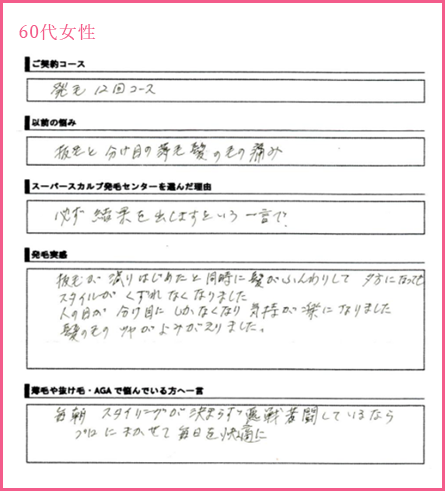 60代女性
ご契約コース
発毛 12回コース
以前の悩み
抜毛と分け目の薄毛髪の毛の痛み
スーパースカルプ発毛センターを選んだ理由
必ず結果を出しますという一言で
発毛実感
抜毛が減りはじめたと同時に髪がふんわりして 夕方になっても
スタイルが くずれなくなりました
人の目が 分け目に しかなくなり 気持が楽になりました
髪の毛の ツヤがよみがえりました。
薄毛や抜け毛・AGAで悩んでいる方へ一言
毎朝 スタイリングが決まらず悪戦苦闘しているなら
プロにまかせて毎日を快適に